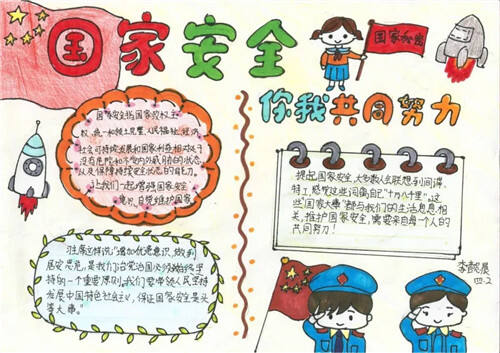 国家安全
国家秘密
你我共同努力
国家安全指国家政权主
权、统一和领土完整、人民福祉、经济
社会可持续发展和国家利益相对处于
没有危险和不受内外威胁的状态,
以及保障持续安全状态的能力。
让我们一起增强国家安全
意识,自觉维护国家
提起国家安全,大多数人会联想到间谍、
特工,感觉这些词离自己“十万八千里”。这
些“国家大事”都与我们的生活息息相
关,维护国家安全,需要来自每一个人的
共同努力!
主席这样说:“增加忧患意识,做到
居安思危,是我们治党治国必须始终坚
持的一个重要原则。我们要带领人民坚持
发展中国特色社会主义,保证国家安全是头
等大事。”
李懿晨
四.2